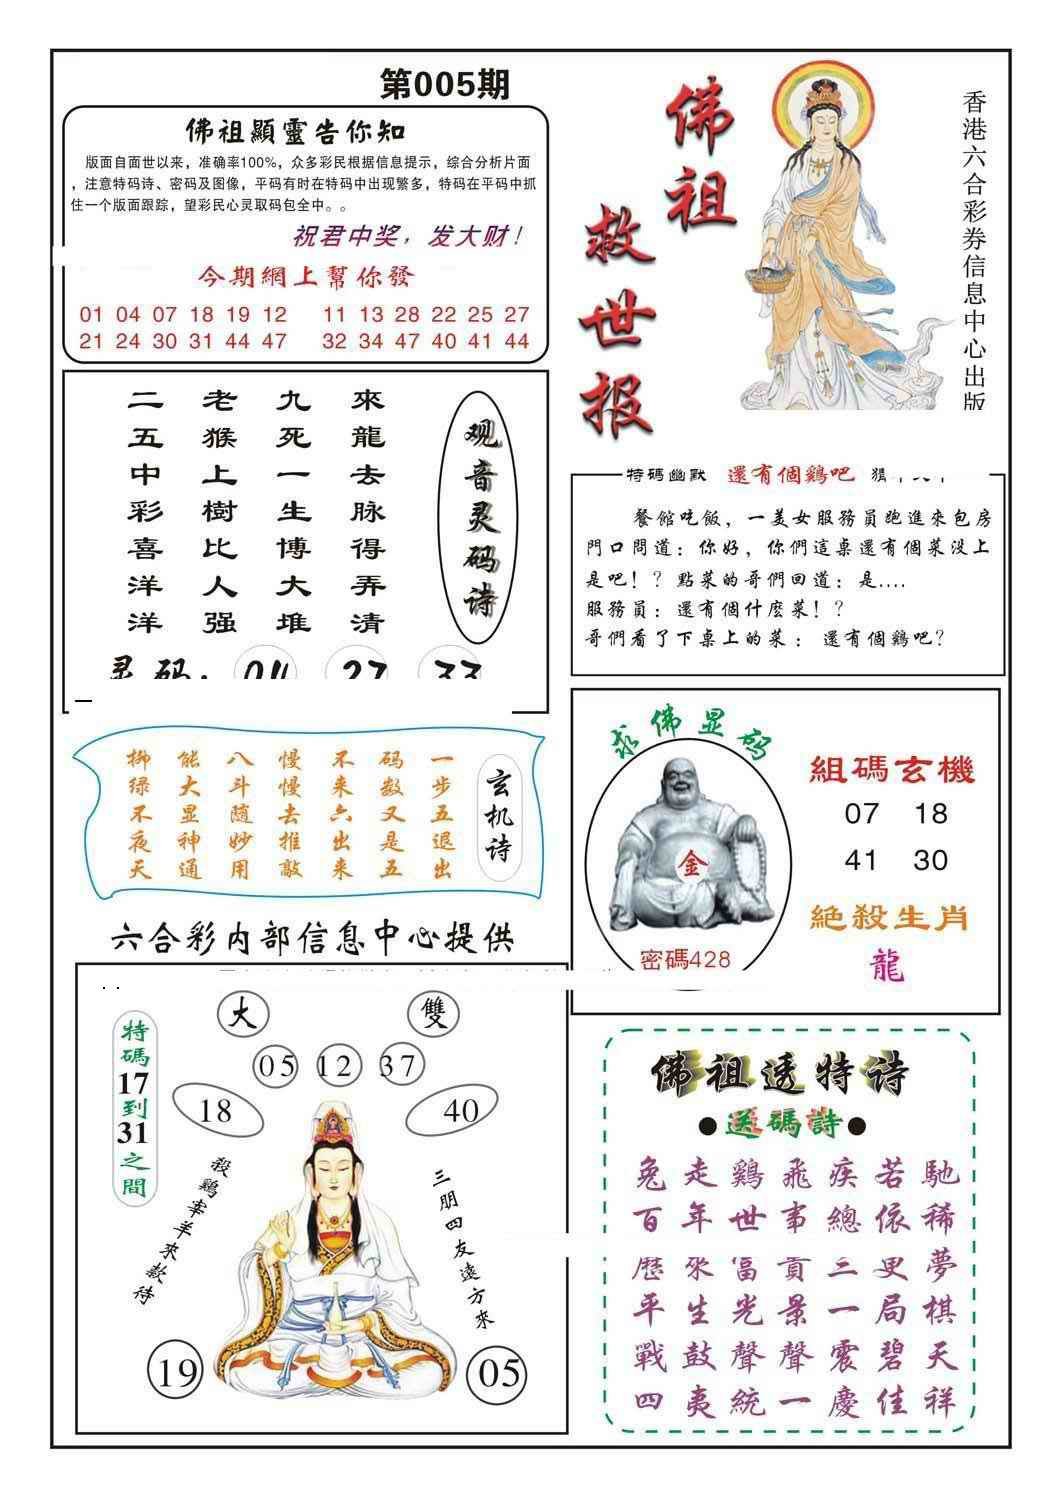 第005期
佛祖顯靈告你知
版面自面世以来，准确率100%，众多彩民根据信息提示，综合分析片面
，注意特码诗、密码及图像，平码有时在特码中出现繁多，特码在平码中抓
住一个版面跟踪，望彩民心灵取码包全中。。
祝君中奖，发大财！
今期網上幫你發
01 04 07 18 19 12 11 13 28 22 25 27
21 24 30 31 44 47 32 34 47 40 41 44
佛祖
救世报
香港六合彩券信息中心出版
观音灵码诗
來龍去脉得弄清
九死一生博大堆
老猴上樹比人强
二五中彩喜洋洋
灵码：04 27 33
特碼幽默 還有個鷄吧
餐館吃飯，一美女服務員跑進來包房
門口問道：你好，你們這桌還有個菜没上
是吧！？點菜的哥們回道：是....
服務員：還有個什麽菜！？
哥們看了下桌上的菜： 還有個鷄吧？
玄机诗
一步五退出
码数又是五
不来六出来
慢慢去推敲
八斗随妙用
能大显神通
柳绿不夜天
求佛显码
金
密碼428
組碼玄機
07 18
41 30
絕殺生肖
龍
六合彩内部信息中心提供
特碼17到31之間
大 雙
05 12 37
18 40
殺鷄宰羊來款待
三朋四友遠方來
19 05
佛祖透特诗
●送碼詩●
兔走鷄飛疾若馳
百年世事總依稀
歷來富貴三更夢
平生光景一局棋
戰鼓聲聲震碧天
四夷統一慶佳祥